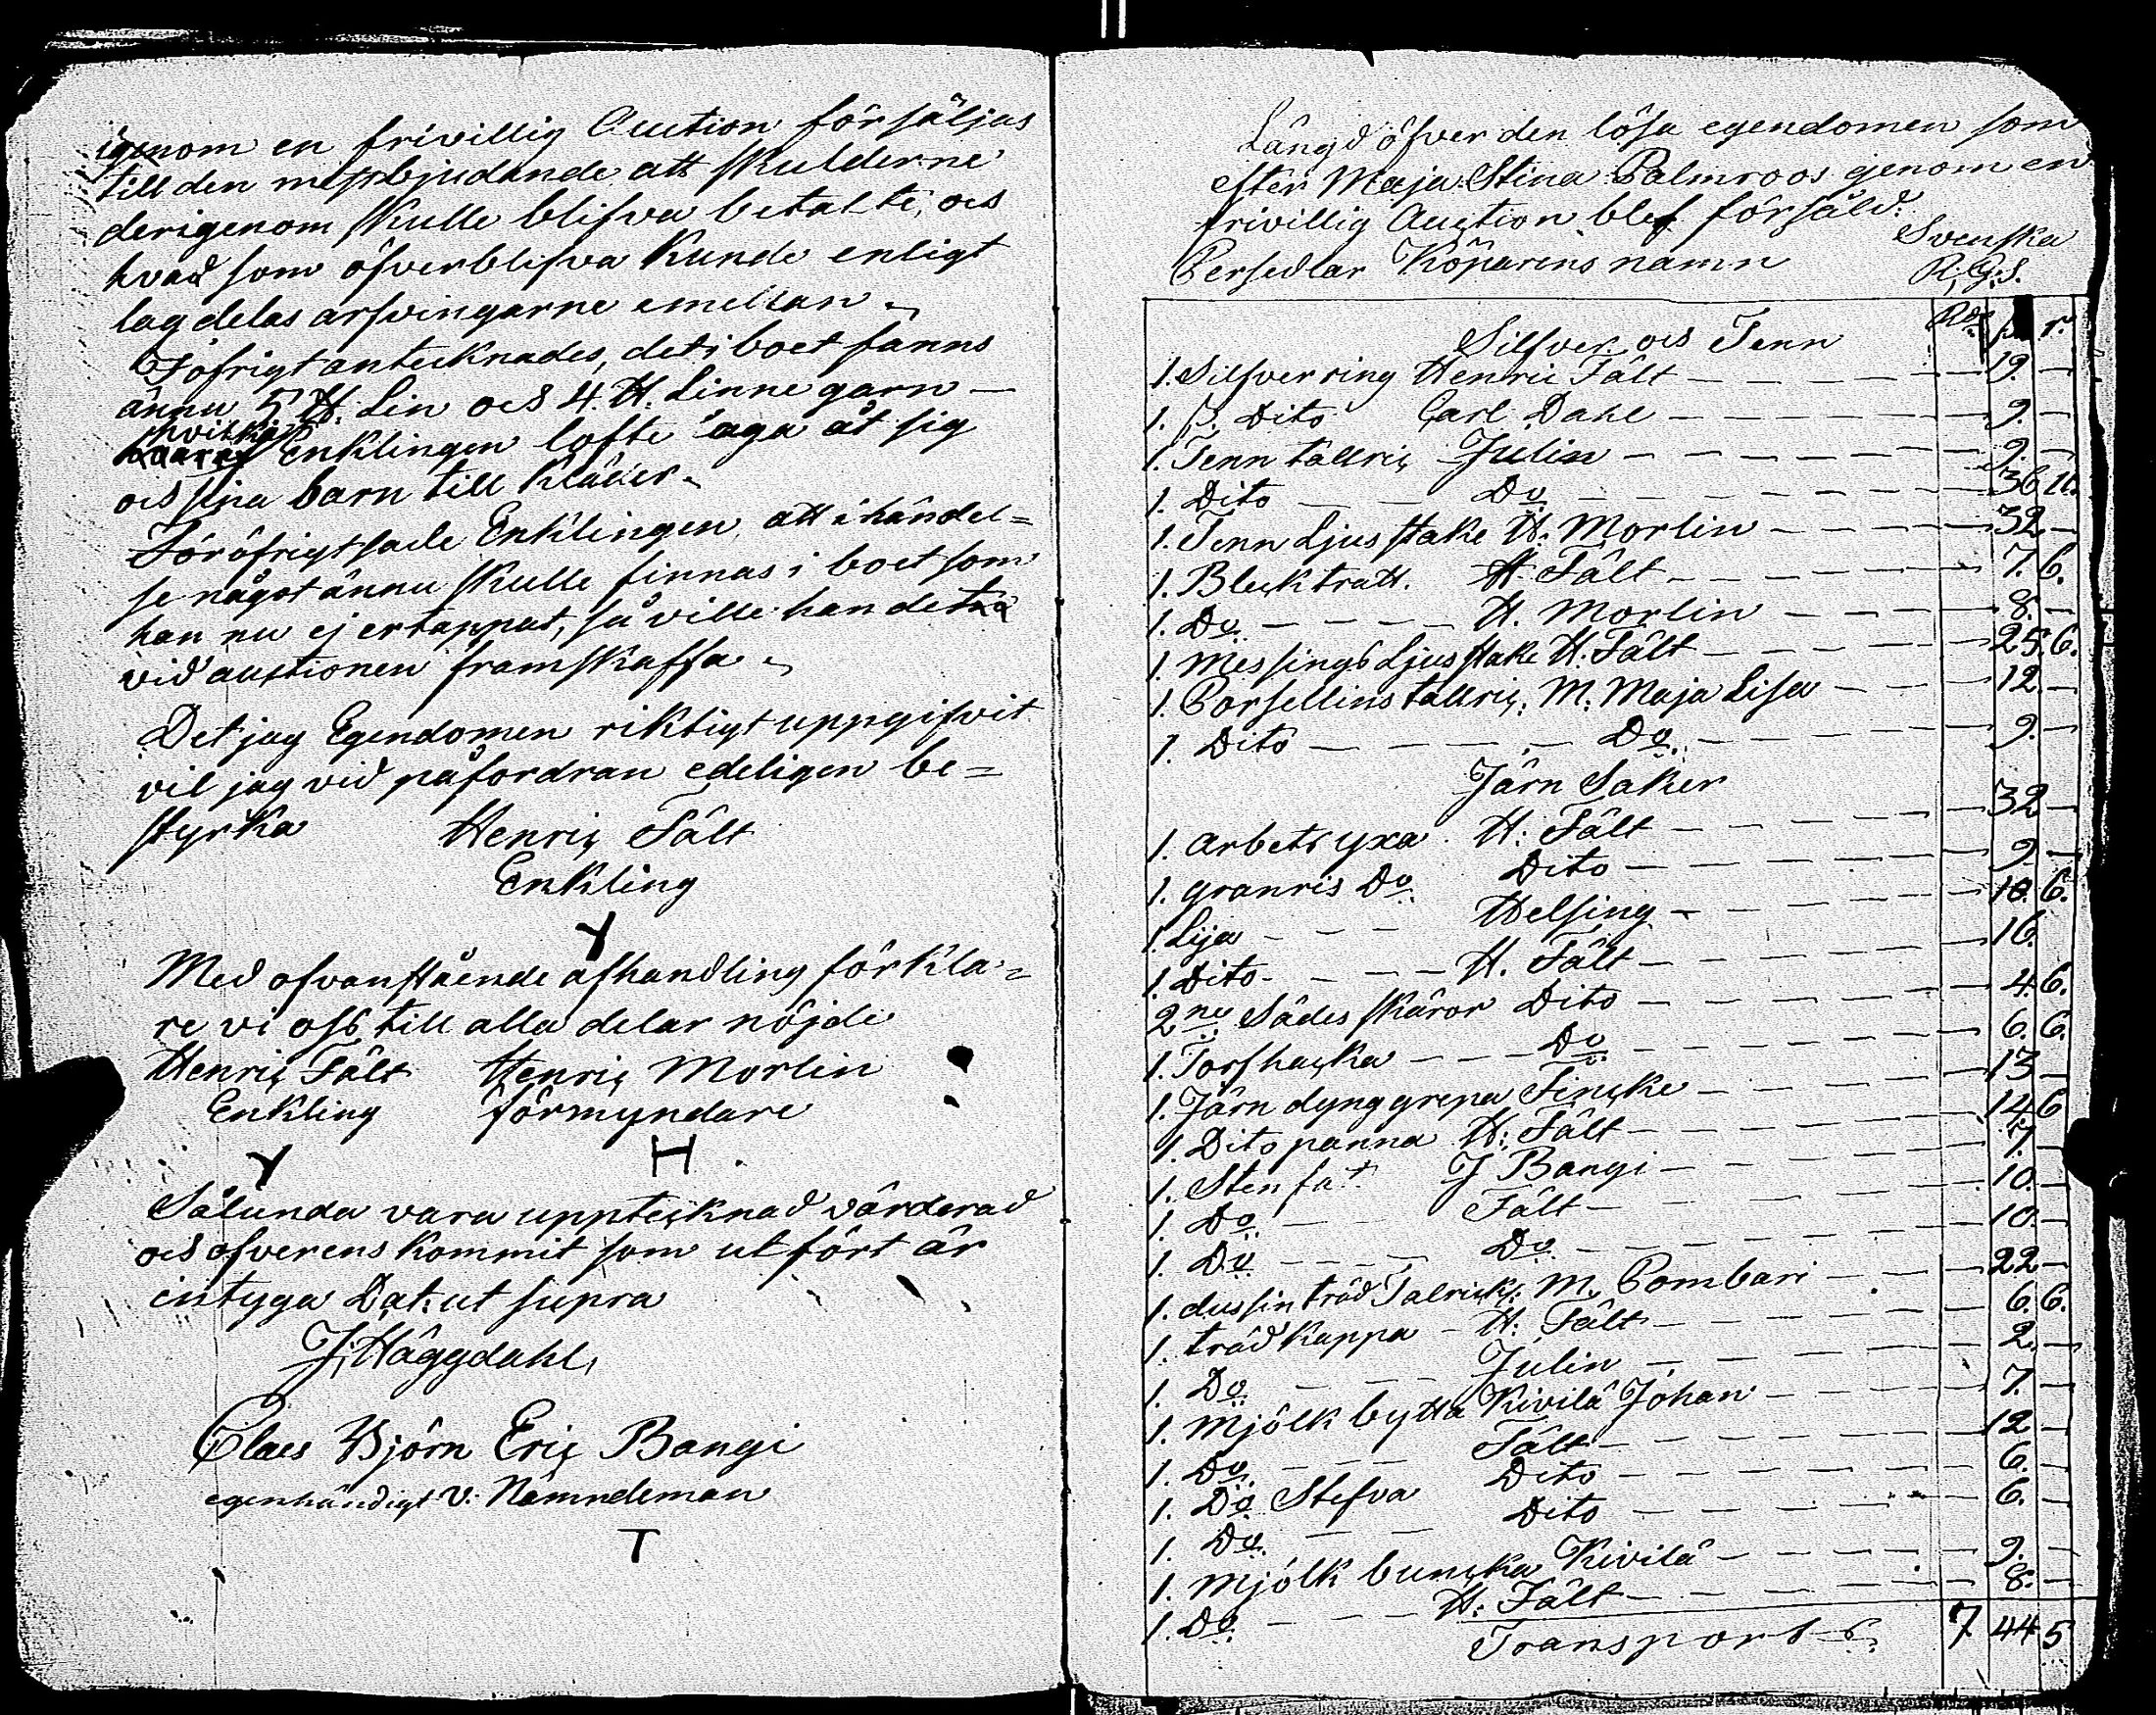 igenom en frivillig Auction försäljas
till den mestbjudande att skulderne
derigenom skulle blifva betalte, och
hvad som öfverblifva kunde enligt
lag delas arfvingarne emellan.
I öfrigt antecknades, det i boet fanns
ännu 5 ℔. Lin och 4. ℔. Linne garn —
hvilka
Enklingen lofte äga åt sig
och sina barn till kläder.
För öfrigt sade Enklingen, att i händel=
se något ännu skulle finnas i boet som
han nu ej ertappat, så ville han det
vid auctionen framskaffa.
Det jag Egendomen riktigt uppgifvit
vil jag vid påfordran edeligen be=
styrka Henric Fält
Enkling
Y
Med ofvanstående afhandling förkla=
re vi oss till alla delar nöjde
Henric Fält Henric Morlin
Enkling förmyndare
Y H
Sålunda vara upptecknad värderad
och öfverens kommit som utfört är
intyga Dat: ut supra
J: Häggdahl,
Claes Björn Eric Bangi
egenhändigt v. Nämndeman
T
Längd öfver den lösa egendomen som
efter Maja Stina Palmroos genom en
frivillig Auction blef försåld.
Svenska
Persedlar Köparens namn R. G. S.
Silfver och Tenn Rd r.
1. Silfver ring Henric Fält — 19. —
1. Dito Carl Dahl — 9. —
1. Tenn tallric Julin — 9. —
1. Dito — Do — 36 11.
1. Tenn Ljus stake H. Morlin — 32 —
1. Bleck tratt. H. Fält — 7. 6.
1. Do — H. Morlin — 8. —
1. Messings Ljusstake H. Fält — 25. 6.
1. Porsellins tallric. M. Maja Lisa — 12. —
1. Dito — Do — 9. —
Järn Saker
1. arbets yxa H: Fält — 32 —
1. granris Do Dito — 9. —
1. Lija — Helsing — 10. 6.
1. Dito — H. Fält — 16.
2ne Sädes skäror Dito — 4. 6.
1. Torfhacka — Do — 6. 6.
1. Järn dynggrepa Fincke — 13 —
1. Dito panna H: Fält — 14. 6
1. Sten fat J Bangi — 7. —
1. Do — Fält — 10. —
1. Do — Do — 10. —
1. dussin träd Talrick: M. Pombari — 22 —
1. träd kappa — H: Fält — 6. 6.
1. Do — Julin — 2. —
1. Mjölk bytta Kivilä Johan — 7. —
1. Do — Fält — 12 —
1. Do Stefva Dito — 6. —
1. Do — Dito — 6. —
1. Mjölk buncka Kivilä — 9. —
1. Do — H: Fält — 8. —
Transport 7 44 5